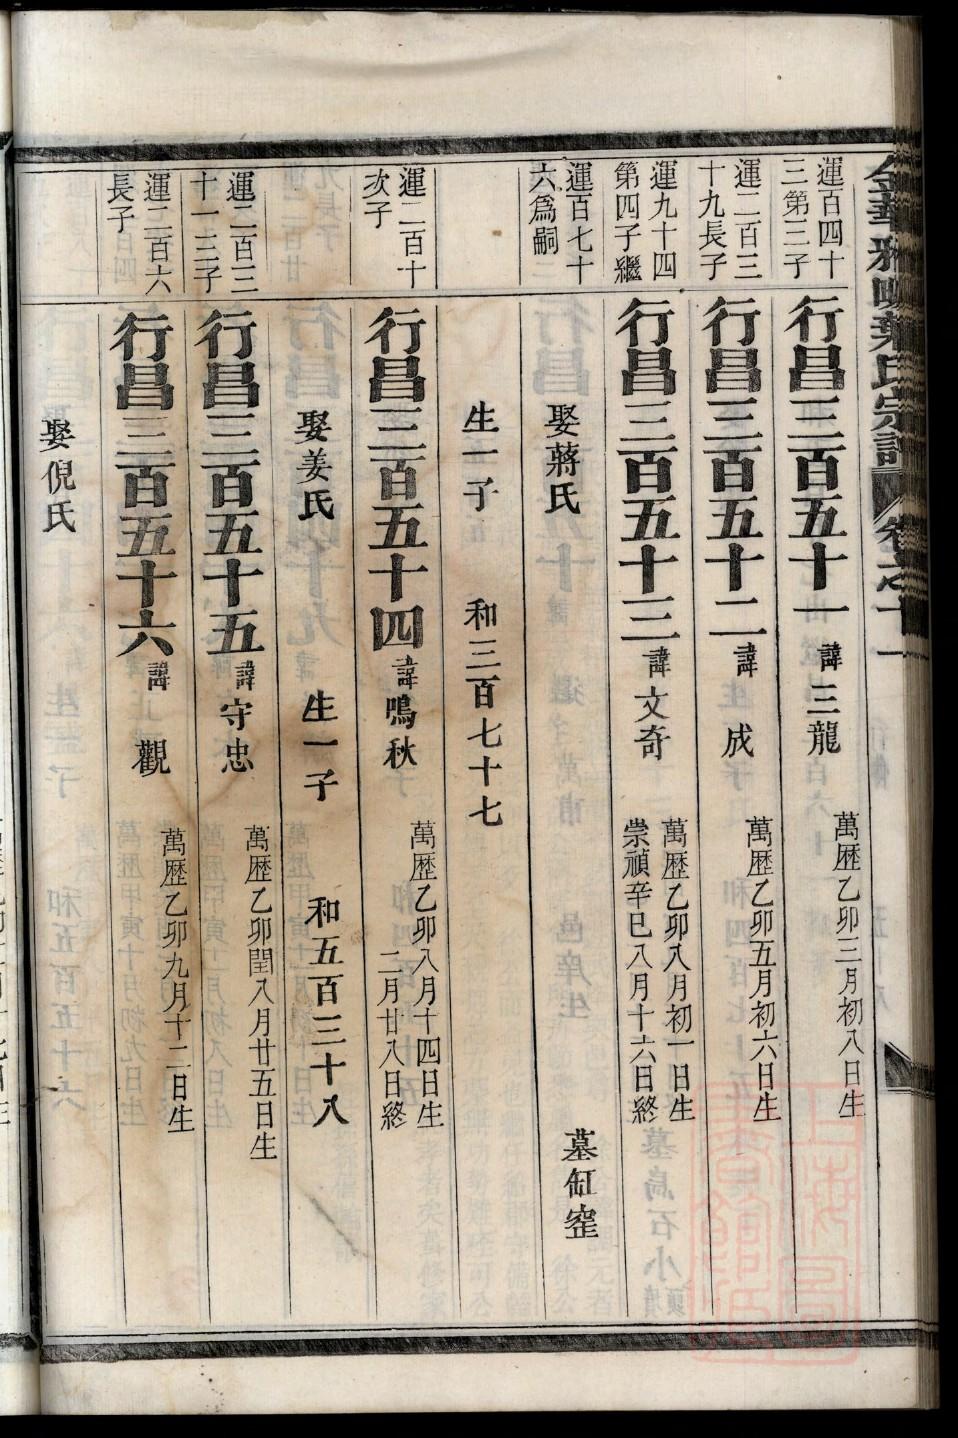 葉氏宗譜
卷之十一
運百四十
三第三子
行昌三百五十一 諱三龍
萬歷乙卯三月初八日生
運二百三
十九長子
行昌三百五十二 諱 成
萬歷乙卯五月初六日生
運九十四
第四子繼
行昌三百五十三 諱文奇
萬歷乙卯八月初一日生
崇禎辛巳八月十六日終
運百七十
六爲嗣
娶蔣氏
墓缸窑
生一子
和三百七十七
運二百十
次子
行昌三百五十四 諱鳴秋
萬歷乙卯八月十四日生
二月廿八日終
娶姜氏
生一子
和五百三十八
運二百三
十一三子
行昌三百五十五 諱守忠
萬歷乙卯閏八月廿五日生
運二百六
長子
行昌三百五十六 諱 觀
萬歷乙卯九月十二日生
娶倪氏